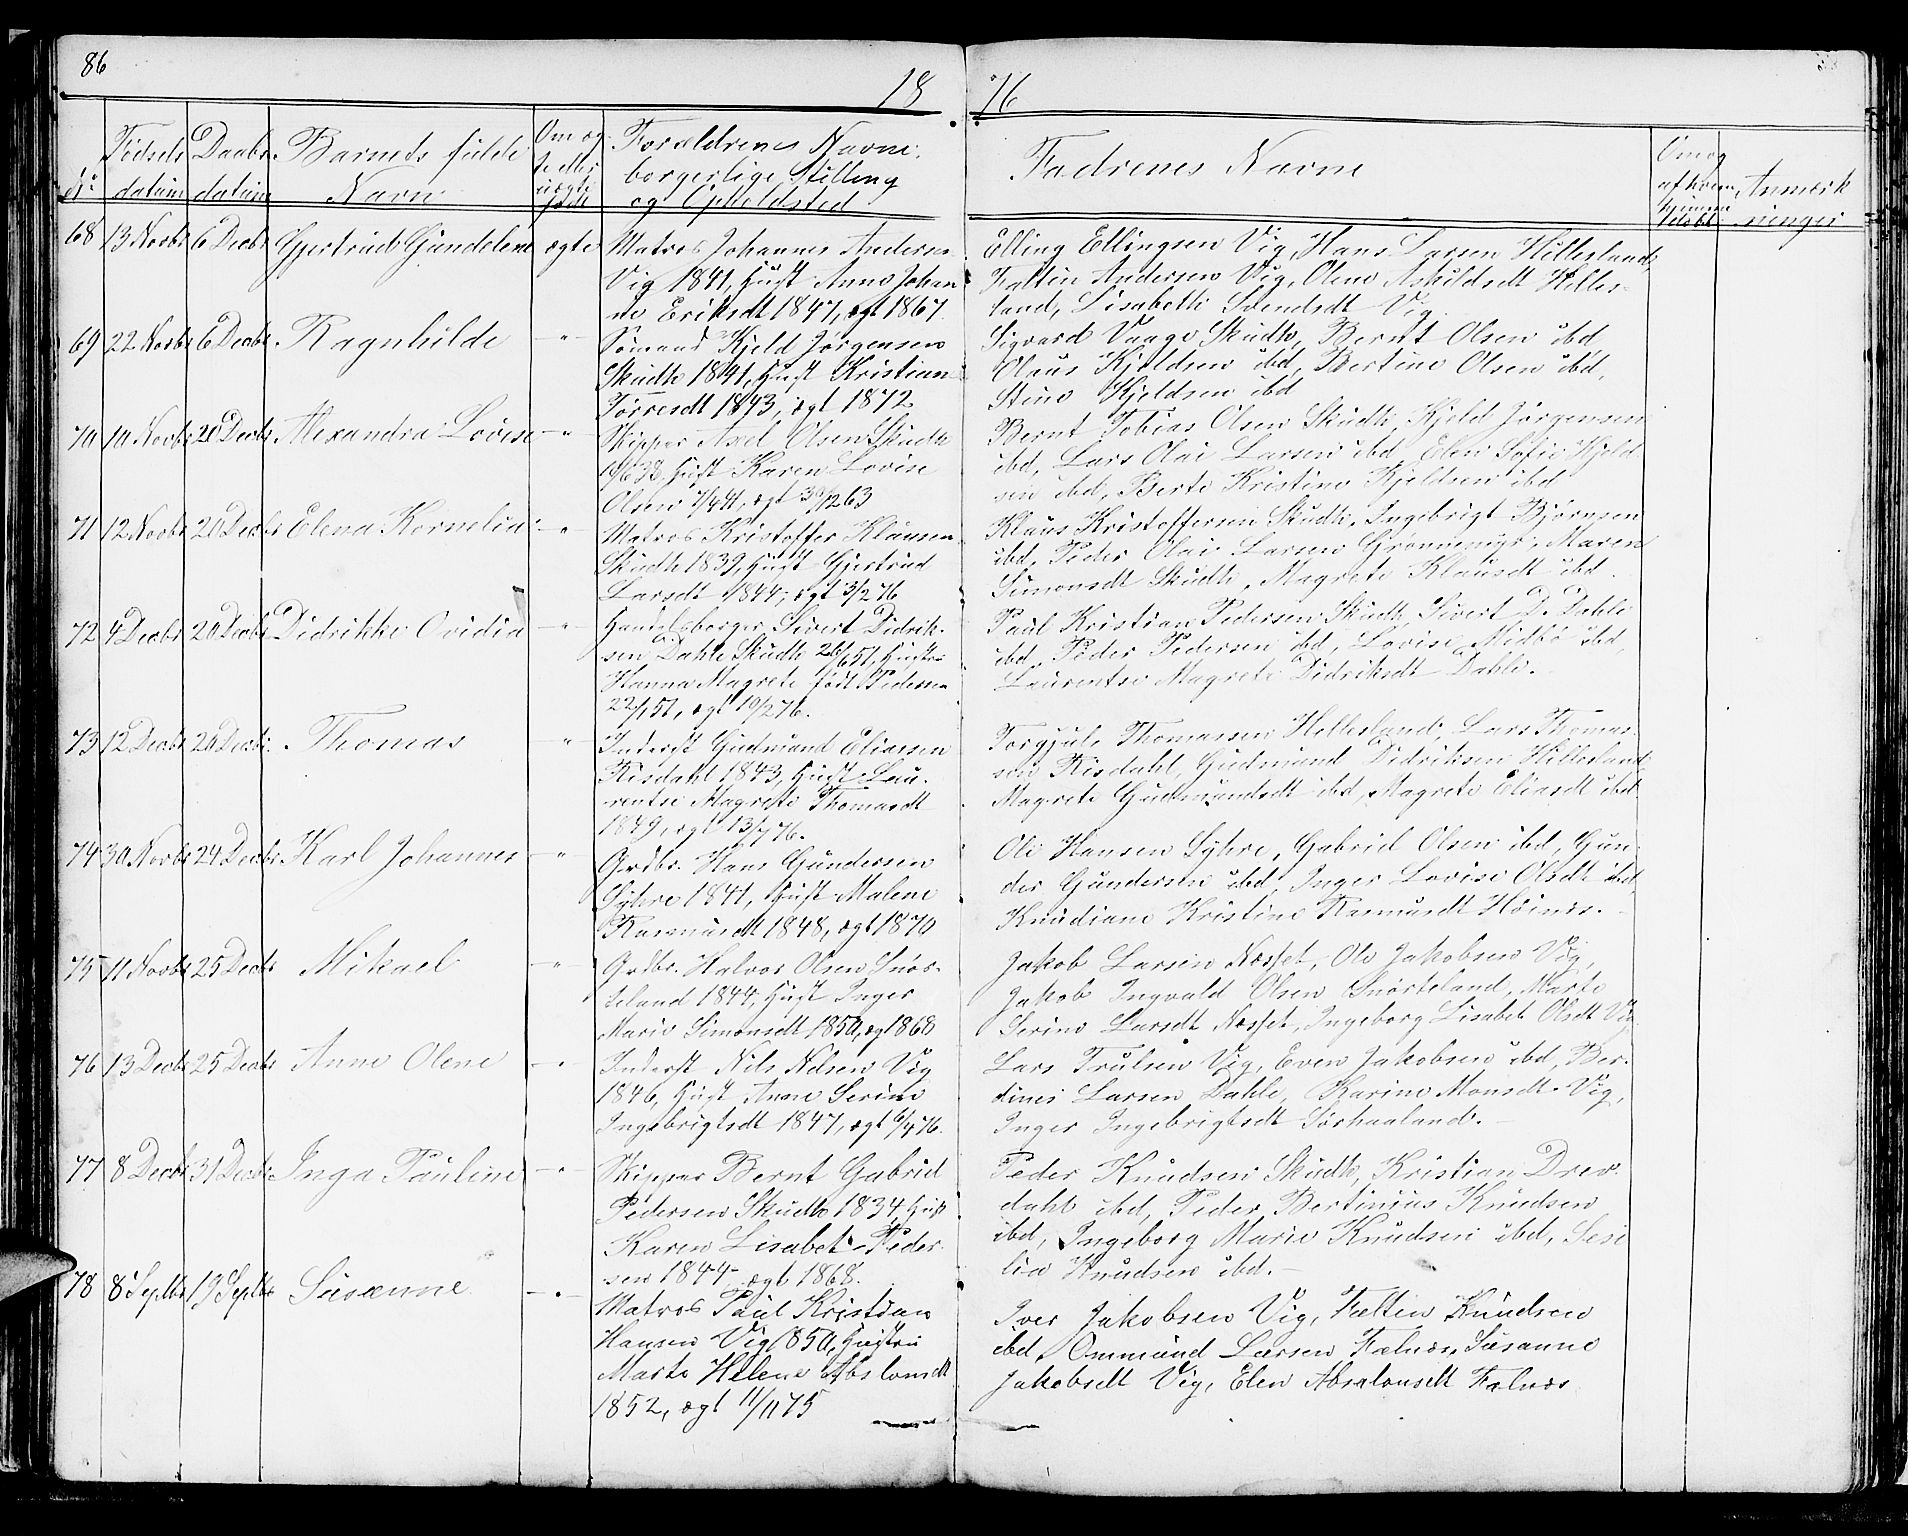 86
18 76
No
Fødsels datum
Daabs datum
Barnets fulde Navn
Om ægte eller uægte født
Forældrenes Navne, borgerlige Stilling og Opholdsted
Fadrenes Navne
Om og af hvem hjemmedøbt
Anmærkninger
68 13 Novbr 6 Decbr Gjertrud Gundelene ægte
Matros Johannes Andersen
Vig 1841, Hust Anne Johan
ne Eriksdt 1847, ægt 1867.
Elling Ellingsen Vig, Hans Larsen Hillesland,
Faltin Andersen Vig, Olene Askildsdt Hilles-
land, Lisabeth Svendsdt Vig.
69 22 Novbr 6 Decbr Ragnhilde - " -
Sømand Kjeld Jørgensen
Skudh 1841, Hust Kristian
Torresdt 1843, ægt 1872
Sigvard Vaage Skudh, Bernt Olsen ibd
Olaus Kjeldsen ibd, Bertine Olsen ibd,
Stine Kjeldsen ibd
70 10 Novbr 20 Decbr Alexandra Lovise - " -
Skipper Axel Olsen Skudh
1/6 38, Hust Karen Lovise
Olsen 7/4 41, ægt 30/12 63
Bernt Tobias Olsen Skudh, Kjeld Jørgensen
ibd, Lars Olai Larsen ibd, Elen Sofie Kjeld
sen ibd, Berte Kristine Kjeldsen ibd
71 12 Novbr 20 Decbr Elena Kornelia - " -
Matros Kristoffer Klausen
Skudh 1839, Hust Gjertrud
Larsdt 1844, ægt 3/2 76
Klaus Kristoffersen Skudh, Ingebrigt Bjørnsen
ibd, Peder Olai Larsen Grønningv, Maren
Simonsdt Skudh, Magrete Klausdt ibd.
72 4 Decbr 20 Decbr Didrikke Ovidia - " -
Handelsborger Sivert Didrik-
sen Dahle Skudh 26/6 51, Hustru
Hanna Magrete født Pedersen
22/1 51, ægt 10/2 76.
Paul Kristian Pedersen Skudh, Sivert D. Dahle
ibd, Peder Pedersen ibd, Lovise Midbø ibd,
Laurentse Magrete Didriksdt Dahle.
73 12 Decbr 20 Decbr Thomas - " -
Inderst Gudmund Eliassen
Risdahl 1843, Hust Lau-
rentse Magrete Thomasdt
1849, ægt 13/7 76.
Torgjuls Thomassen Hillesland, Lars Thomas-
sen Risdahl, Gudmund Didriksen Hillesland
Magrete Gudmundsdt ibd, Magrete Eliasdt ibd.
74 30 Novbr 24 Decbr Karl Johannes - " -
Grdbr. Hans Gundersen
Syhre 1841, Hust Malene
Rasmusdt 1848, ægt 1870
Ole Hansen Syhre, Gabriel Olsen ibd, Gun-
der Gundersen ibd, Inger Lovise Olsdt ibd
Knudiane Kristine Rasmusdt Høines.
75 11 Novbr 25 Decbr Mikael - " -
Grdbr. Halvor Olsen Snør-
teland 1844, Hust Inger
Marie Simonsdt 1850, ægt 1868
Jakob Larsen Næsset, Ole Jakobsen Vig,
Jakob Ingvald Olsen Snørteland, Marte
Serine Larsdt Næsset, Ingeborg Lisabet Olsdt Vig
76 13 Decbr 25 Decbr Anne Olene - " -
Inderst Nils Nilsen Vig
1846, Hust Anne Serine
Ingebrigtsdt 1847, ægt 6/4 76.
Lars Trulsen Vig, Even Jakobsen ibd, Ber-
dines Larsen Dahle, Karine Monsdt Vig,
Inger Ingebrigtsdt Sørhaaland.
77 8 Decbr 31 Decbr Inga Pauline - " -
Skipper Bernt Gabriel
Pedersen Skudh 1834, Hust
Karen Lisabet Peder-
sen 1844, ægt 1868.
Peder Knudsen Skudh, Kristian Drev-
dahl ibd, Peder Bertinius Knudsen
ibd, Ingeborg Marie Knudsen ibd, Sesi
lia Knudsen ibd.
78 8 Septbr 19 Septbr Susanne - " -
Matros Paul Kristian
Hansen Vig 1850, Hustru
Marte Helene Abslomsdt
1852, ægt 11/11 75
Iver Jakobsen Vig, Faltin Knudsen
ibd, Ommund Larsen Falnæs, Susanne
Jakobsdt Vig, Elen Absalonsdt Falnæs